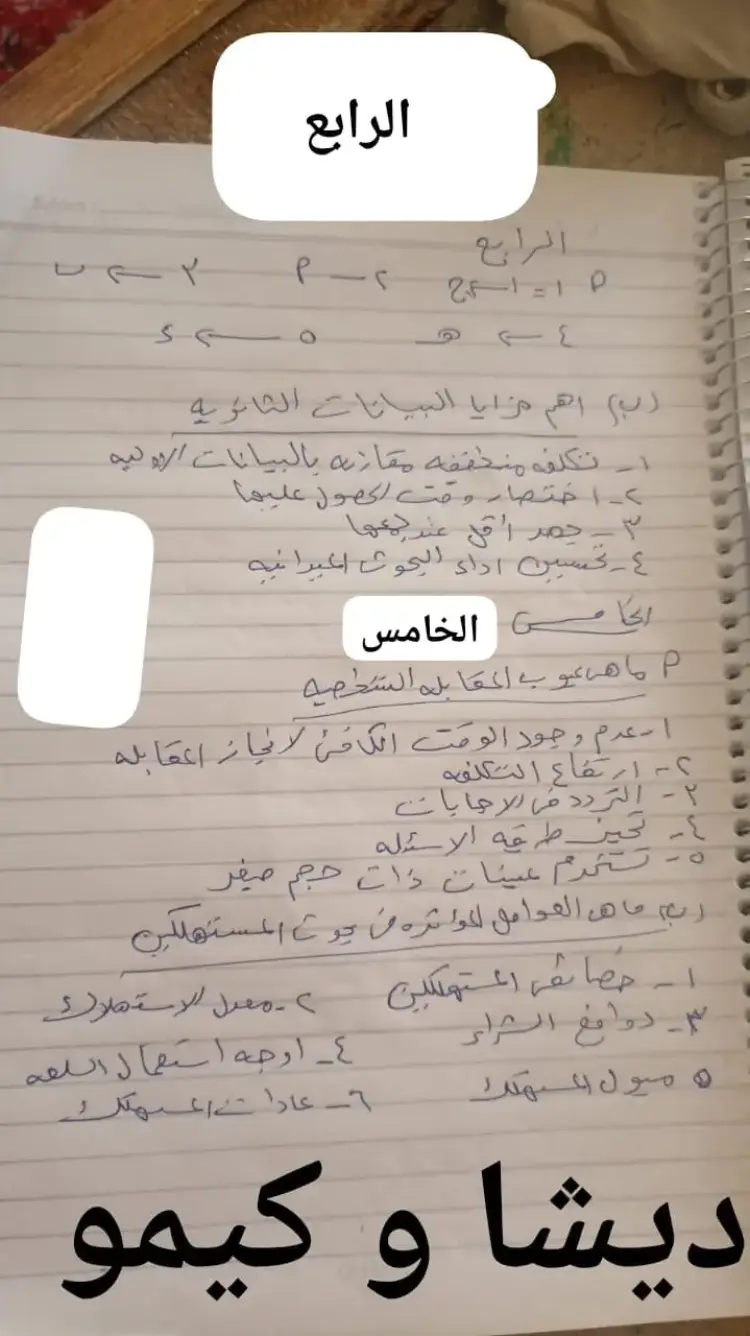 الرابع
الرابع
P ١= ١ ← ج ٢ — P ٣ ← ب
٤ ← هـ ٥ ← د
(ب) اهم مزايا البيانات الثانويه
١- تكلفه منخفضه مقارنه بالبيانات الاوليه
٢- اختصار وقت الحصول عليها
٣- جهد أقل عند جمعها
٤- تحسين اداء البحوث الميدانيه
الخامس
الخامس
P ماهى عيوب المقابله الشخصيه
١- عدم وجود الوقت الكافى لانجاز المقابله
٢- ارتفاع التكلفه
٣- التردد فى الاجابات
٤- تحيز طريقه الاسئله
٥- تستخدم عينات ذات حجم صغير
(ب) ماهى العوامل المؤثره فى بحوث المستهلكين
١- خصائص المستهلكين ٢- معدل الاستهلاك
٣- دوافع الشراء ٤- اوجه استعمال السلعه
٥ ميول المستهلك ٦- عادات المستهلك
ديشا و كيمو